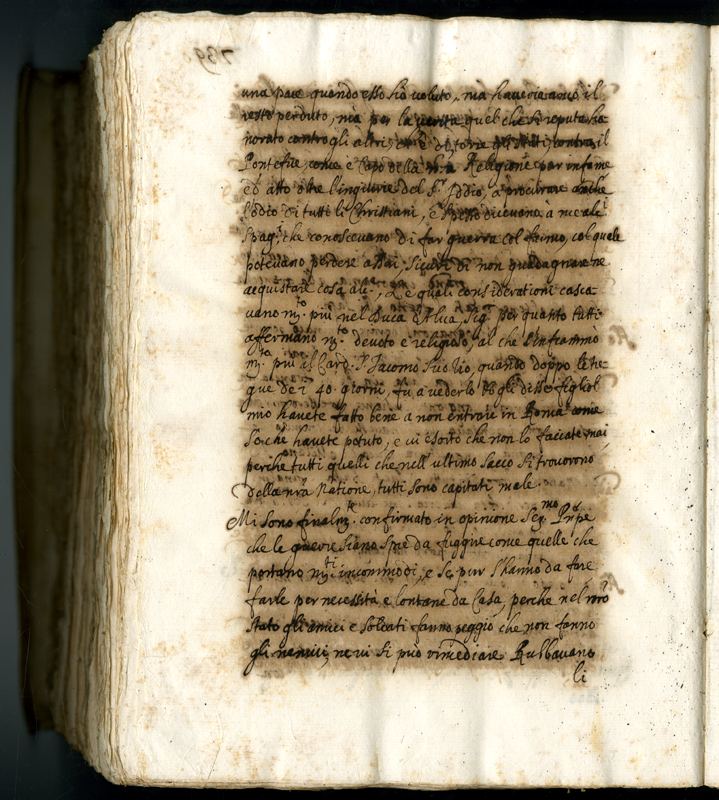 una pace quando esso hà voluto, mà haveria anco il
resto perduto, mà per la verità quel che si reputa ho
norato contro gli altri, et di vittorie contra il
Pontefice, come è Capo della n.ra Religione par infame
ed atto oltre l'ingiurie del S.r Iddio, à procurare anche
l'odio di tutti li Christiani, e spesso dicevano à me ali
Spag.li che conoscevano di far guerra col feimo, col quale
potevano perdere assai, sicuri di non guadagnar ne
acquistare cosa alc.a, Le quali considerationi casca
vano m.to più nel Duca d'Alva, Seg.r per quanto tutti
affermano m.to devoto e religioso, al che l'infiammò
m.to più il Card. S. Jacomo suo Zio, quando doppo le tre
gue de i 40. giorni, fù a vederlo gli disse figliol
mio havete fatto bene a non entrare in Roma come
sò che havete potuto, e vi esorto che non lo facciate mai
perche tutti quelli che nell'ultimo sacco si trovorono
della nr̃a Natione, tutti sono capitati male.
Mi sono finalm.te confirmato in opinione Ser.mo Prñpe
che le guerre siano spre da fuggire come quelle che
portano m.ti incommodi, e se pur s'hanno da fare
farle per necessità, e lontane da Casa, perche nel pprõ
stato gli amici e soldati fanno peggio che non fanno
gli nemici, ne vi si può rimediare Rubbavano
li